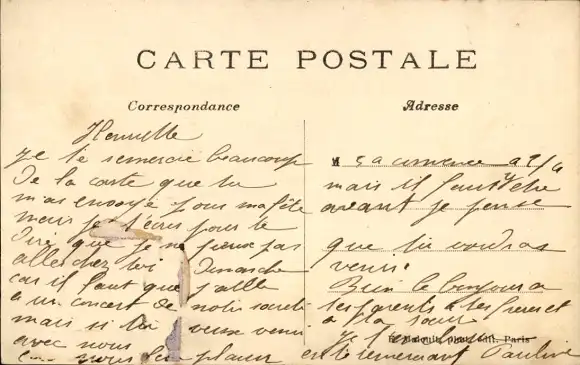 CARTE POSTALE
Correspondance
Adresse
Henriette
je te remercie beaucoup
de la carte que tu
m'as envoyé pour ma fête
mais je t'écris pour te
dire que je ne peux pas
aller chez toi Dimanche
car il faut que j'aille
a un concert de notre société
mais si tu veux venir
avec nous
nous fera plaisir
M sa commence a 2/4
mais il faut y être
avant je pense
que tu voudras
venir.
Bien le bonjour a
tes parents a tes freres et
a ta soeur
Je
phot. édit. Paris
et te remerciant Pauline